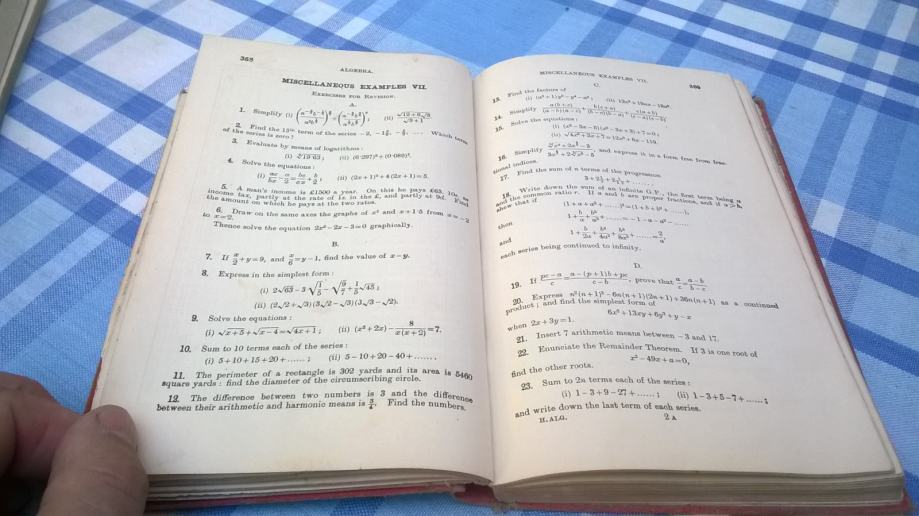 368
ALGEBRA.
MISCELLANEOUS EXAMPLES VII.
EXERCISES FOR REVISION.
A.
1. Simplify (i)
2. Find the 15th term of the series −2, Which term
of the series is zero?
3. Evaluate by means of logarithms:
4. Solve the equations:
(ii) (2x+1)²+4(2x+1)=5.
5. A man's income is £1500 a year. On this he pays £63, 10s.
income tax, partly at the rate of 1s. in the £, and partly at 9d. Find
the amount on which he pays at the two rates.
6. Draw on the same axes the graphs of x² and x+1·5 from x=−2
to x=2.
Thence solve the equation 2x²−2x−3=0 graphically.
B.
7. If x/2+y=9, and x/6=y−1, find the value of x−y.
8. Express in the simplest form:
(i) 2√63−3√(1/5)−√(9/7)+(1/5)√45;
(ii) (2√2+√3)(3√2−√3)(3√3−√2).
9. Solve the equations:
(i) √(x+5)+√(x−4)=√(4x+1); (ii) (x²+2x)−8/(x(x+2))=7.
10. Sum to 10 terms each of the series:
(i) 5+10+15+20+......; (ii) 5−10+20−40+.......
11. The perimeter of a rectangle is 302 yards and its area is 5460
square yards: find the diameter of the circumscribing circle.
12. The difference between two numbers is 3 and the difference
between their arithmetic and harmonic means is 3/4. Find the numbers.
MISCELLANEOUS EXAMPLES VII.
C.
13. Find the factors of
14. Simplify
15. Solve the equations:
16. Simplify and express it in a form free from frac-
tional indices.
17. Find the sum of n terms of the progression
18. Write down the sum of an infinite G.P., the first term being a
and the common ratio r. If a and b are proper fractions, and if
show that if
then
and
each series being continued to infinity.
D.
19. If (pc−a)/c=(a−(p+1)b+pc)/(c−b), prove that a/c=(a−b)/(b−c).
20. Express n²(n+1)²−6n(n+1)(2n+1)+36n(n+1) as a continued
product; and find the simplest form of
6x²+13xy+6y²+y−x
when 2x+3y=1.
21. Insert 7 arithmetic means between −3 and 17.
22. Enunciate the Remainder Theorem. If 3 is one root of
x³−49x+a=0,
find the other roots.
23. Sum to 2n terms each of the series:
(i) 1−3+9−27+......; (ii) 1−3+5−7+......;
and write down the last term of each series.
H.ALG. 2 A